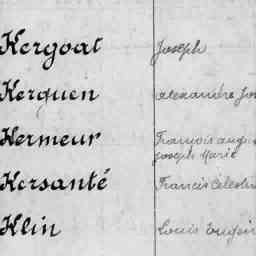 Kergoat Joseph
Kerguen Alexandre
Kermeur François
Joseph Marie
Kersanté Francis Célestin
Klin Louis Eugène